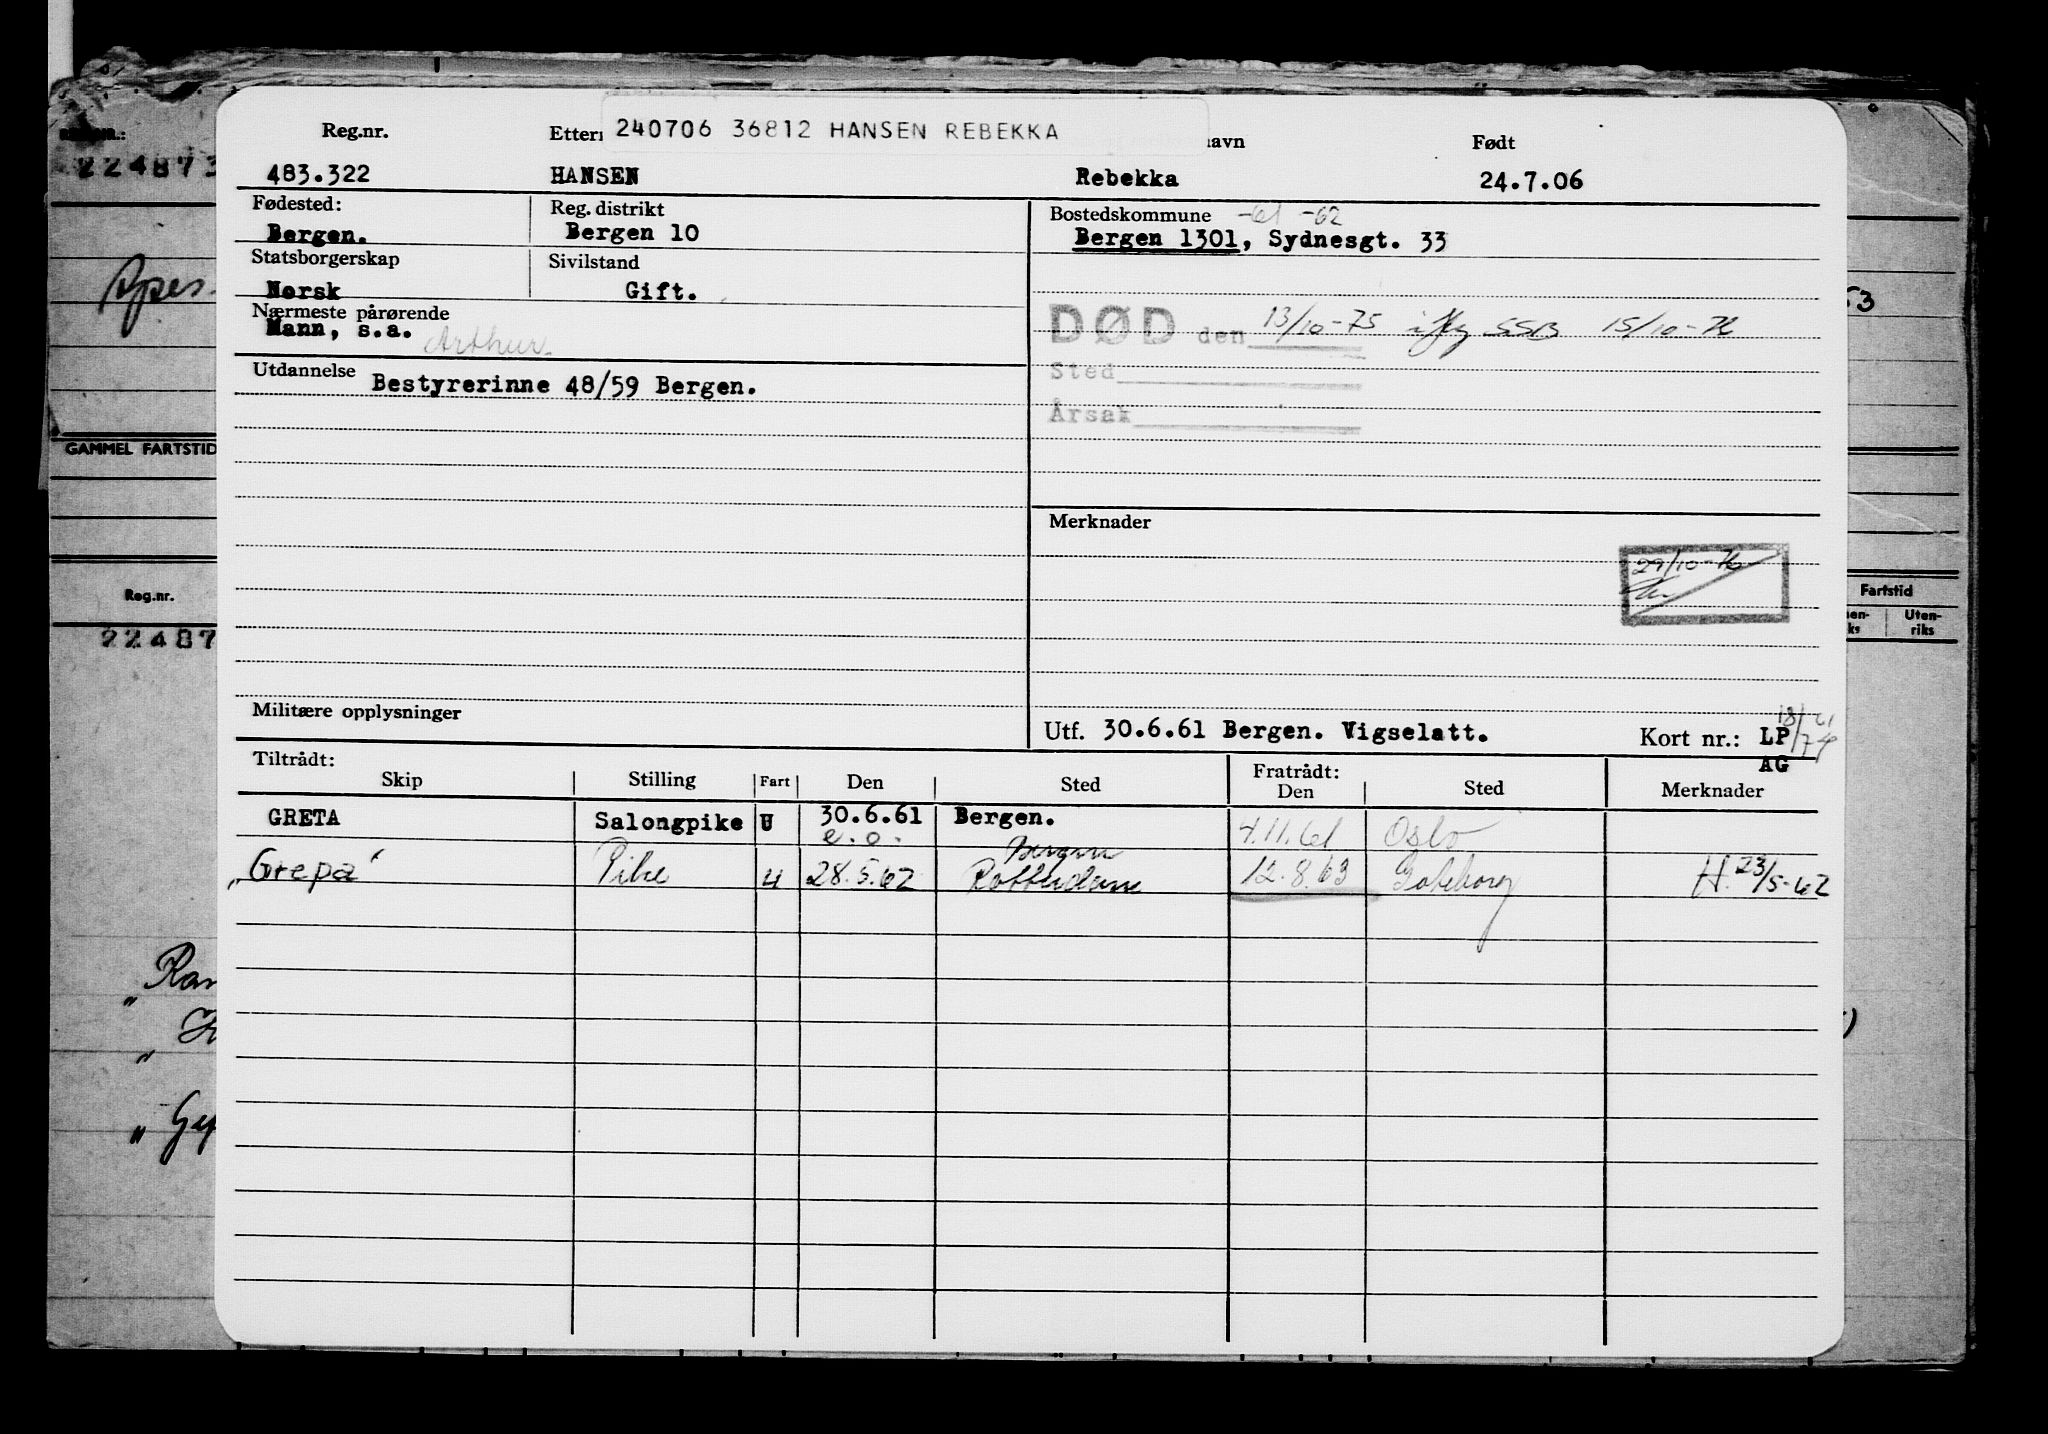 240706 36812 HANSEN REBEKKA
Reg.nr. Født
483.322 HANSEN Rebekka 24.7.06
Fødested: Reg. distrikt Bostedskommune -61 -62
Bergen. Bergen 10 Bergen 1301, Sydnesgt. 33
Statsborgerskap Sivilstand
Norsk Gift.
Nærmeste pårørende
Mann, s.a. Arthur.
DØD den 13/10-75 SSB 15/10-76
Sted
Årsak
Utdannelse Bestyrerinne 48/59 Bergen.
Merknader
29/10-76
Militære opplysninger
Utf. 30.6.61 Bergen. Vigselatt. Kort nr.: LP
AG
Tiltrådt: Fratrådt:
Skip Stilling Fart Den Sted Den Sted Merknader
GRETA Salongpike U 30.6.61 Bergen. 4.11.61 Oslo
e.o. Bergen
"Grepa" Pike U 28.5.62 Rotterdam 12.8.63 Gøteborg H. 23/5-62
224873
GAMMEL FARTSTID
Reg.nr.
22487
53
Fartstid
Uten-
riks